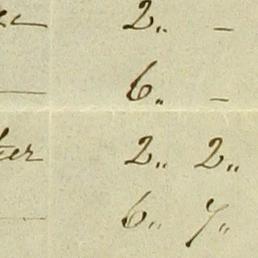 2„ –
— 6„ –
ter 2„ 2„
— 6„ 7„